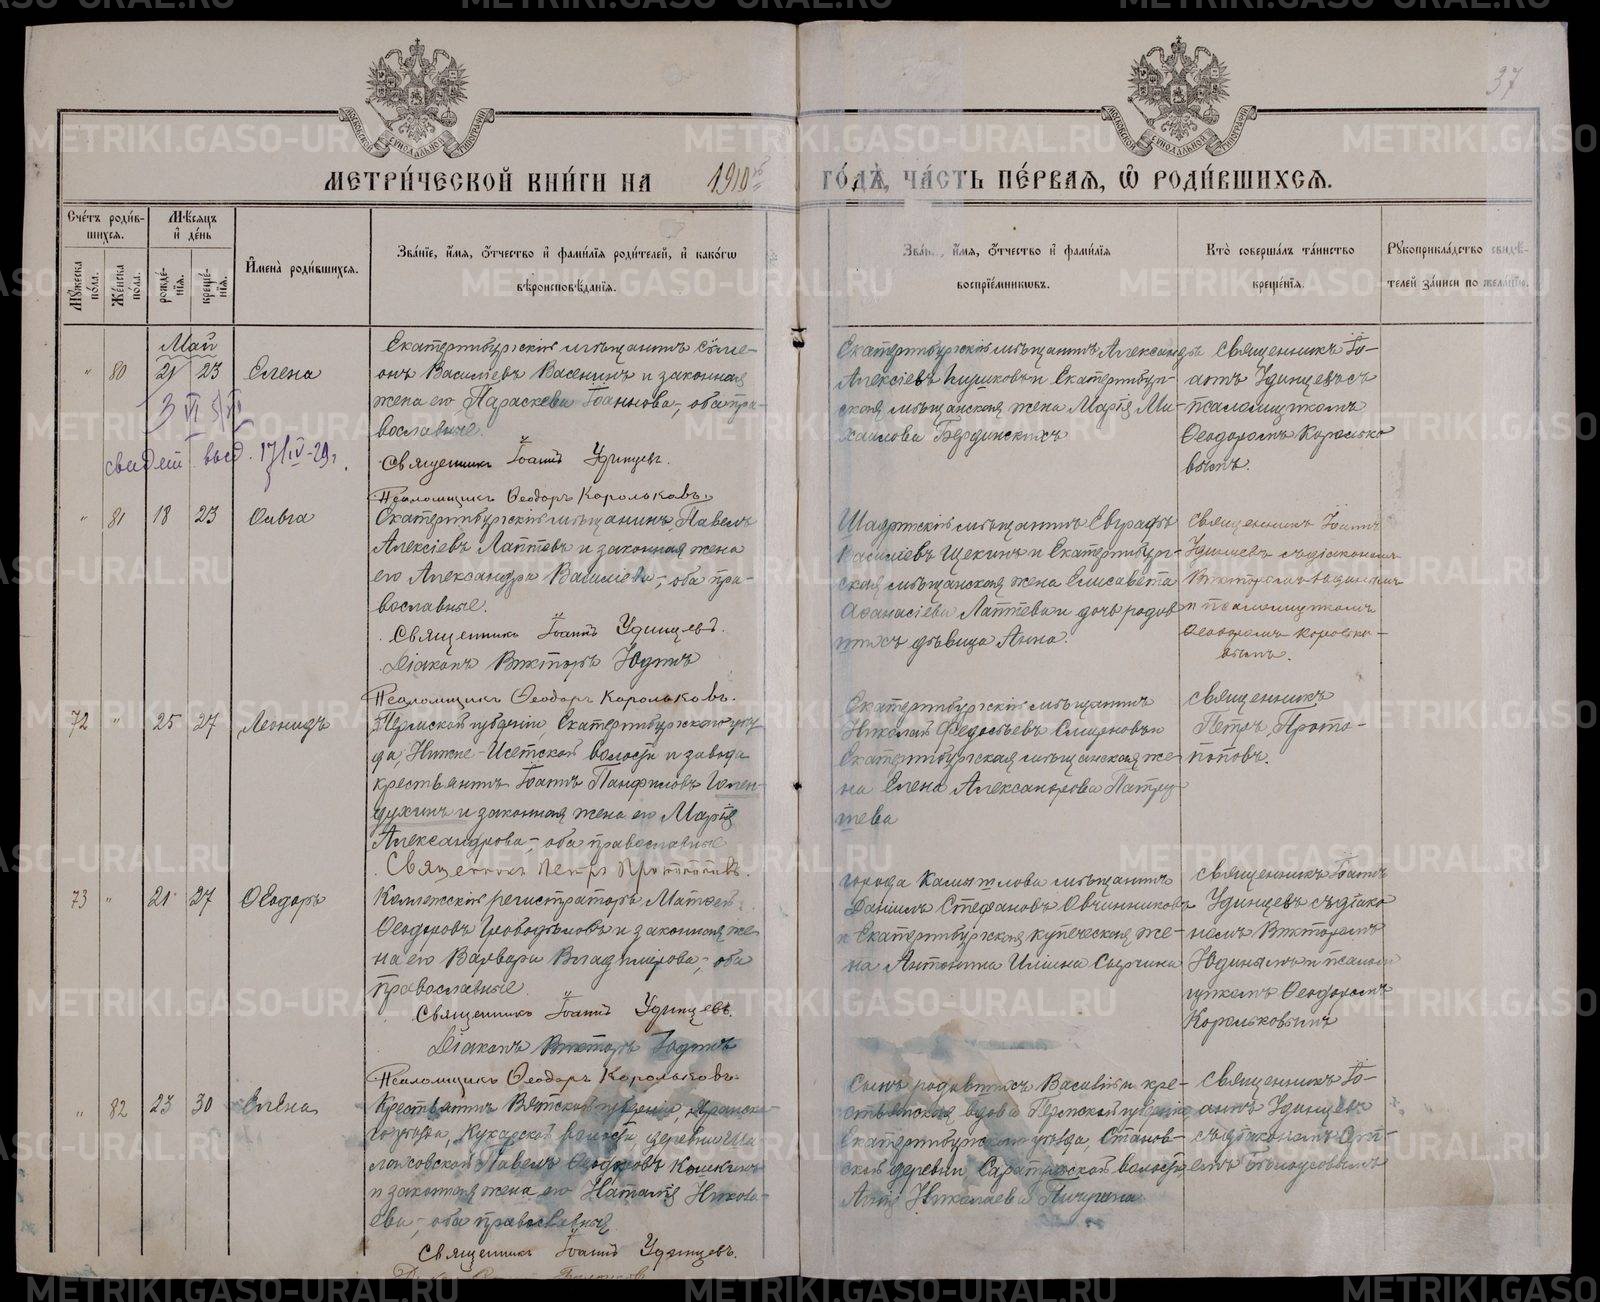 37
МЕТРИ́ЧЕСКОЙ КНИ́ГИ НА 1910 ГО́ДЪ, ЧА́СТЬ ПЕ́РВАЯ, Ѡ РОДИ́ВШИХСЯ.
Сче́тъ роди́в-
шихся.
Мꙋ́жеска по́ла.
Же́нска по́ла.
Мѣ́сяцъ
и҆ де́нь
рожде́-
нїя.
креще́-
нїя.
И҆мена̀ роди́вшихся.
Зва́нїе, и҆́мя, ѻ҆́тчество и҆ фами́лїя роди́телей, и҆ како́гѡ
вѣроисповѣ́данїя.
и҆́мя, ѻ҆́тчество и҆ фами́лїя
воспрїе́мникѡвъ.
Кто̀ соверша́лъ та́инство
креще́нїя.
Рꙋкоприкла́дство свидѣ́-
телей за́писи по жела́нїю.
Май
" 80 21 23 Елена
Екатеринбургскій мѣщанинъ Сѵме-
онъ Василіевъ Васенинъ и законная
жена его Параскева Іоаннова, оба пра-
вославные.
Священникъ Іоаннъ Удинцевъ.
Псаломщикъ Ѳеодоръ Корольковъ.
Екатеринбургскій мѣщанинъ Александръ
Алексіевъ и Екатеринбург-
ская мѣщанская жена Марія Ми-
хаилова Бердинскихъ
Священникъ Іо-
аннъ Удинцевъ съ
псаломщикомъ
Ѳеодоромъ Королько
вымъ.
3 VI
выд. 17/IV-29г.
" 81 18 23 Ольга
Екатеринбургскій мѣщанинъ Павелъ
Алексіевъ Лаптевъ и законная жена
его Александра Василіева, оба пра-
вославные.
Священникъ Іоаннъ Удинцевъ.
Діаконъ Викторъ Юдинъ
Псаломщикъ Ѳеодоръ Корольковъ.
Шадринскій мѣщанинъ Евграфъ
Василіевъ Щекинъ и Екатеринбург-
ская мѣщанская жена Елисавета
Аѳанасіева Лаптева и дочь родов
дѣвица Анна.
Священникъ Іоаннъ
Удинцевъ съ діакономъ
Викторомъ Юдинымъ
и псаломщикомъ
Ѳеодоромъ Королько-
вымъ.
72 " 25 27 Леонидъ
Пермской губерніи, Екатеринбургскаго уѣз
да, Нижне-Исетской волости и завода
крестьянинъ Іоаннъ Панфиловъ Голен-
духинъ и законная жена его Марія
Александрова, оба православные
Священникъ Петръ Протопоповъ.
Екатеринбургскій мѣщанинъ
Николай Федосѣевъ и
Екатеринбургская мѣщанская же-
на Елена Александрова Патру
шева
Священникъ
Петръ Прото-
поповъ.
73 " 21 27 Ѳеодоръ
Коллежскій регистраторъ Матѳей
Ѳеодоровъ и законная же
на его Варвара Владимірова, оба
православные.
Священникъ Іоаннъ Удинцевъ.
Діаконъ Викторъ Юдинъ
Псаломщикъ Ѳеодоръ Корольковъ.
города Камышлова мѣщанинъ
Даніилъ Стефановъ Овчинниковъ
и Екатеринбургская купеческая же-
на Антонина Ильина Сырчина
Священникъ Іоаннъ
Удинцевъ съ діако
номъ Викторомъ
Юдинымъ и псалом
щикомъ Ѳеодоромъ
Корольковымъ
" 82 23 30 Елена
Крестьянинъ Вятской губерніи, Яранска-
го уѣзда, Кукарской волости, деревни Ша
ложовской Павелъ Ѳеодоровъ Кошкинъ
и законная жена его Наталія Никола-
ева, оба православные
Священникъ Іоаннъ Удинцевъ.
Сынъ родившихъ Василій и кре-
стьянская вдова Пермской губерніи
Екатеринбургскаго уѣзда, Станов-
ской деревни волости,
Анна Николаева Пичугина
Священникъ Іо-
аннъ Удинцевъ
съ діакономъ
METRIKI.GASO-URAL.RU